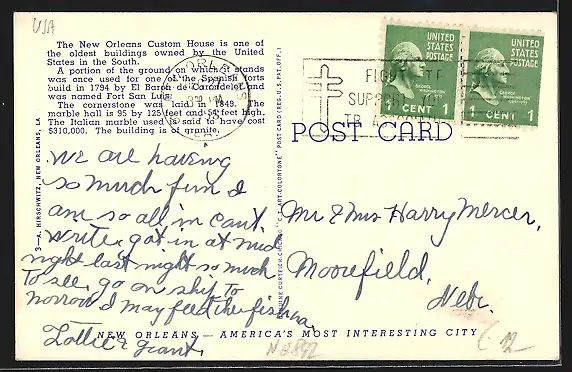 USA
The New Orleans Custom House is one of
the oldest buildings owned by the United
States in the South.
A portion of the ground on which it stands
was once used for one of the Spanish forts
build in 1794 by El Baron de Carondelet and
was named Fort San Luis.
The cornerstone was laid in 1849. The
marble hall is 95 by 125 feet and 54 feet high.
The Italian marble used is said to have cost
$310,000. The building is of granite.
3—A. HIRSCHWITZ, NEW ORLEANS, LA
We are having
so much fun I
am so all in can't
write got in at mid
night last night so much
to see, go on ship to
morrow I may feed the fish ha.
Lottie & Grant.
POST CARD (REG. U.S. PAT. OFF.)
UNITED
STATES
POSTAGE
1 CENT 1
UNITED
STATES
POSTAGE
1 CENT 1
FIGHT TB
SUPPORT
TB
POST CARD
Mr & Mrs Harry Mercer,
Moorefield,
Nebr.
NEW ORLEANS — AMERICA'S MOST INTERESTING CITY
12